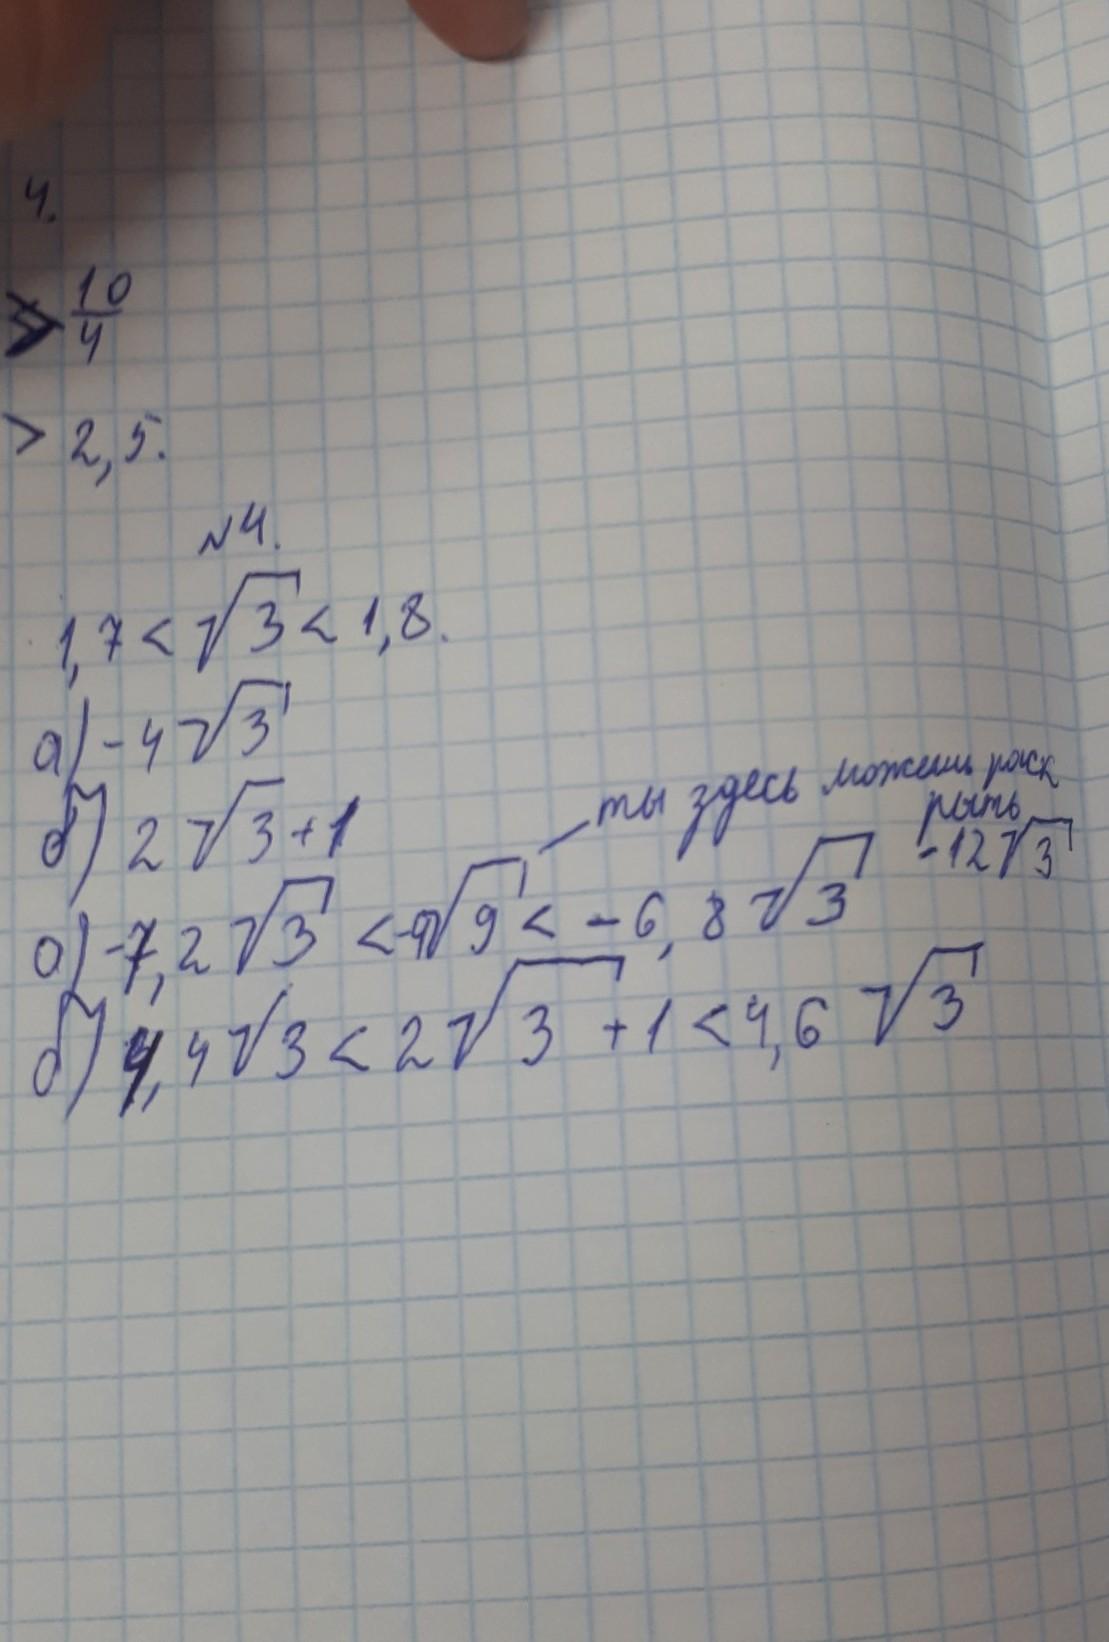 4.
> 10/4
> 2,5.
№4.
1,7 < √3 < 1,8.
а) -4√3
б) 2√3 + 1
ты здесь можешь раск
рыть
-12√3
а) -7,2√3 < -4√9 < -6,8√3
б) 4,4√3 < 2√3 + 1 < 4,6√3